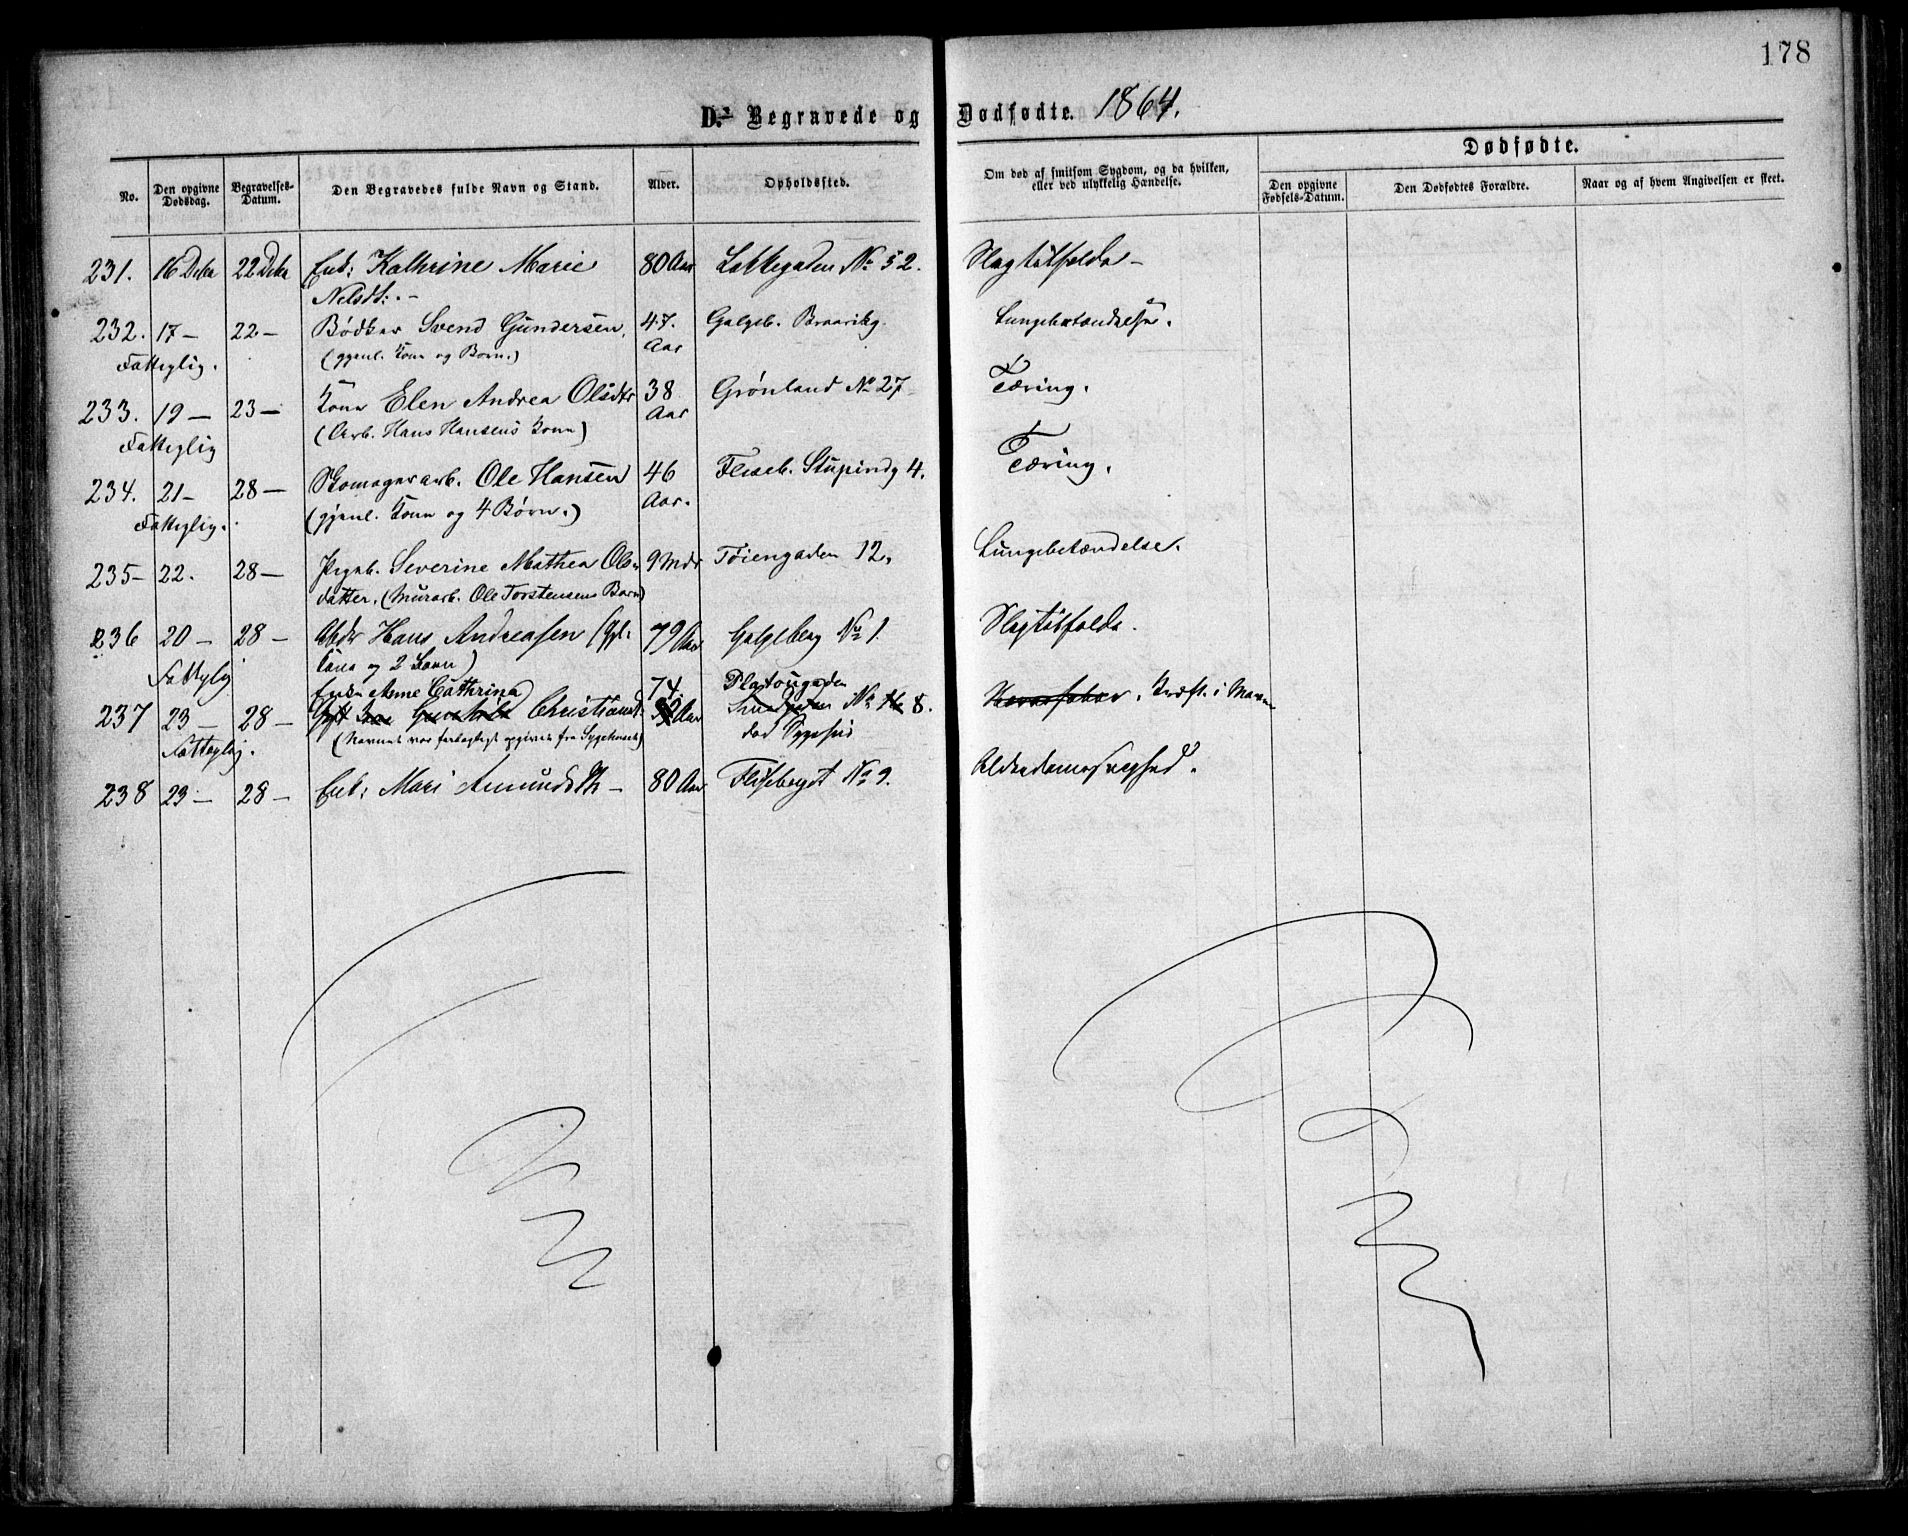 178
D.² Begravede og Dødfødte. 1864.
No. Den opgivne Dødsdag. Begravelses-Datum. Den Begravedes fulde Navn og Stand. Alder. Opholdssted. Om død af smitsom Sygdom, og da hvilken, eller ved ulykkelig Hændelse. Dødfødte.
Den opgivne Fødsels-Datum. Den Dødfødtes Forældre. Naar og af hvem Angivelsen er skeet.
231. 16 Debr 22 Debr Enk: Kathrine Marie 80 Aar Lakkegaden No 52. Slagtilfælde -
Nelsdt: -
232. 17 - 22 - Bødker Svend Gundersen, 47. Galgeb. Lungebetændelse.
Fattiglig. (gjenl. Kone og Børn.) Aar
233. 19 - 23 - Kone Elen Andrea Olsdtr 38 Grønland No 27 Tæring.
Fattiglig (Arb. Hans Hansens Kone) Aar
234. 21 - 28 - Skomagerarb. Ole Hansen 46 Fliseb. Stupindg 4. Tæring.
Fattiglig. (gjenl. Kone og 4 Børn.) Aar.
235 - 22. 28 - Pigeb. Severine Mathea Ols- 9 Mdr Tøiengaden 12. Lungebetændelse.
datter. (Murarb. Ole Torstensens Barn)
236 20 - 28 - Arbdr Hans Andreasen (Gjl: 79 Aar Galgeberg No 1. Slagtilfælde.
Fattiglig Kone og 2 Børn)
Enke Anne Cathrina 74. Platougaden
237 23 - 28 - Gift Kone Christiansd: Aar Smedgaden No 8. Kræft i Maven
Fattiglig. (Navnet var feilagtigt opgivet fra Sygehuset) død Sygehus
238 23 - 28 - Enk: Mari Amundsdtr - 80 Aar Fliseberget No 9. Alderdomssvaghed.